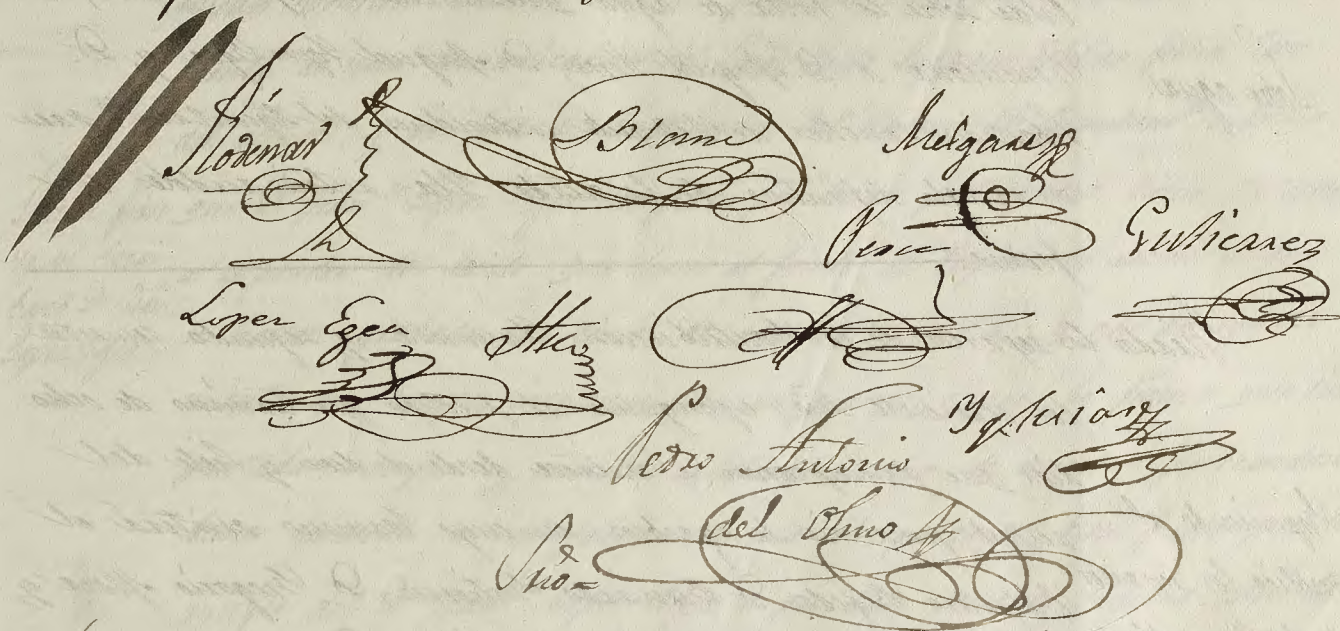 Rodenas
Blanc
Melgarez
Perea
Gutierrez
Lopez Egea
Yglesias
Pedro Antonio
del Olmo
Srio=